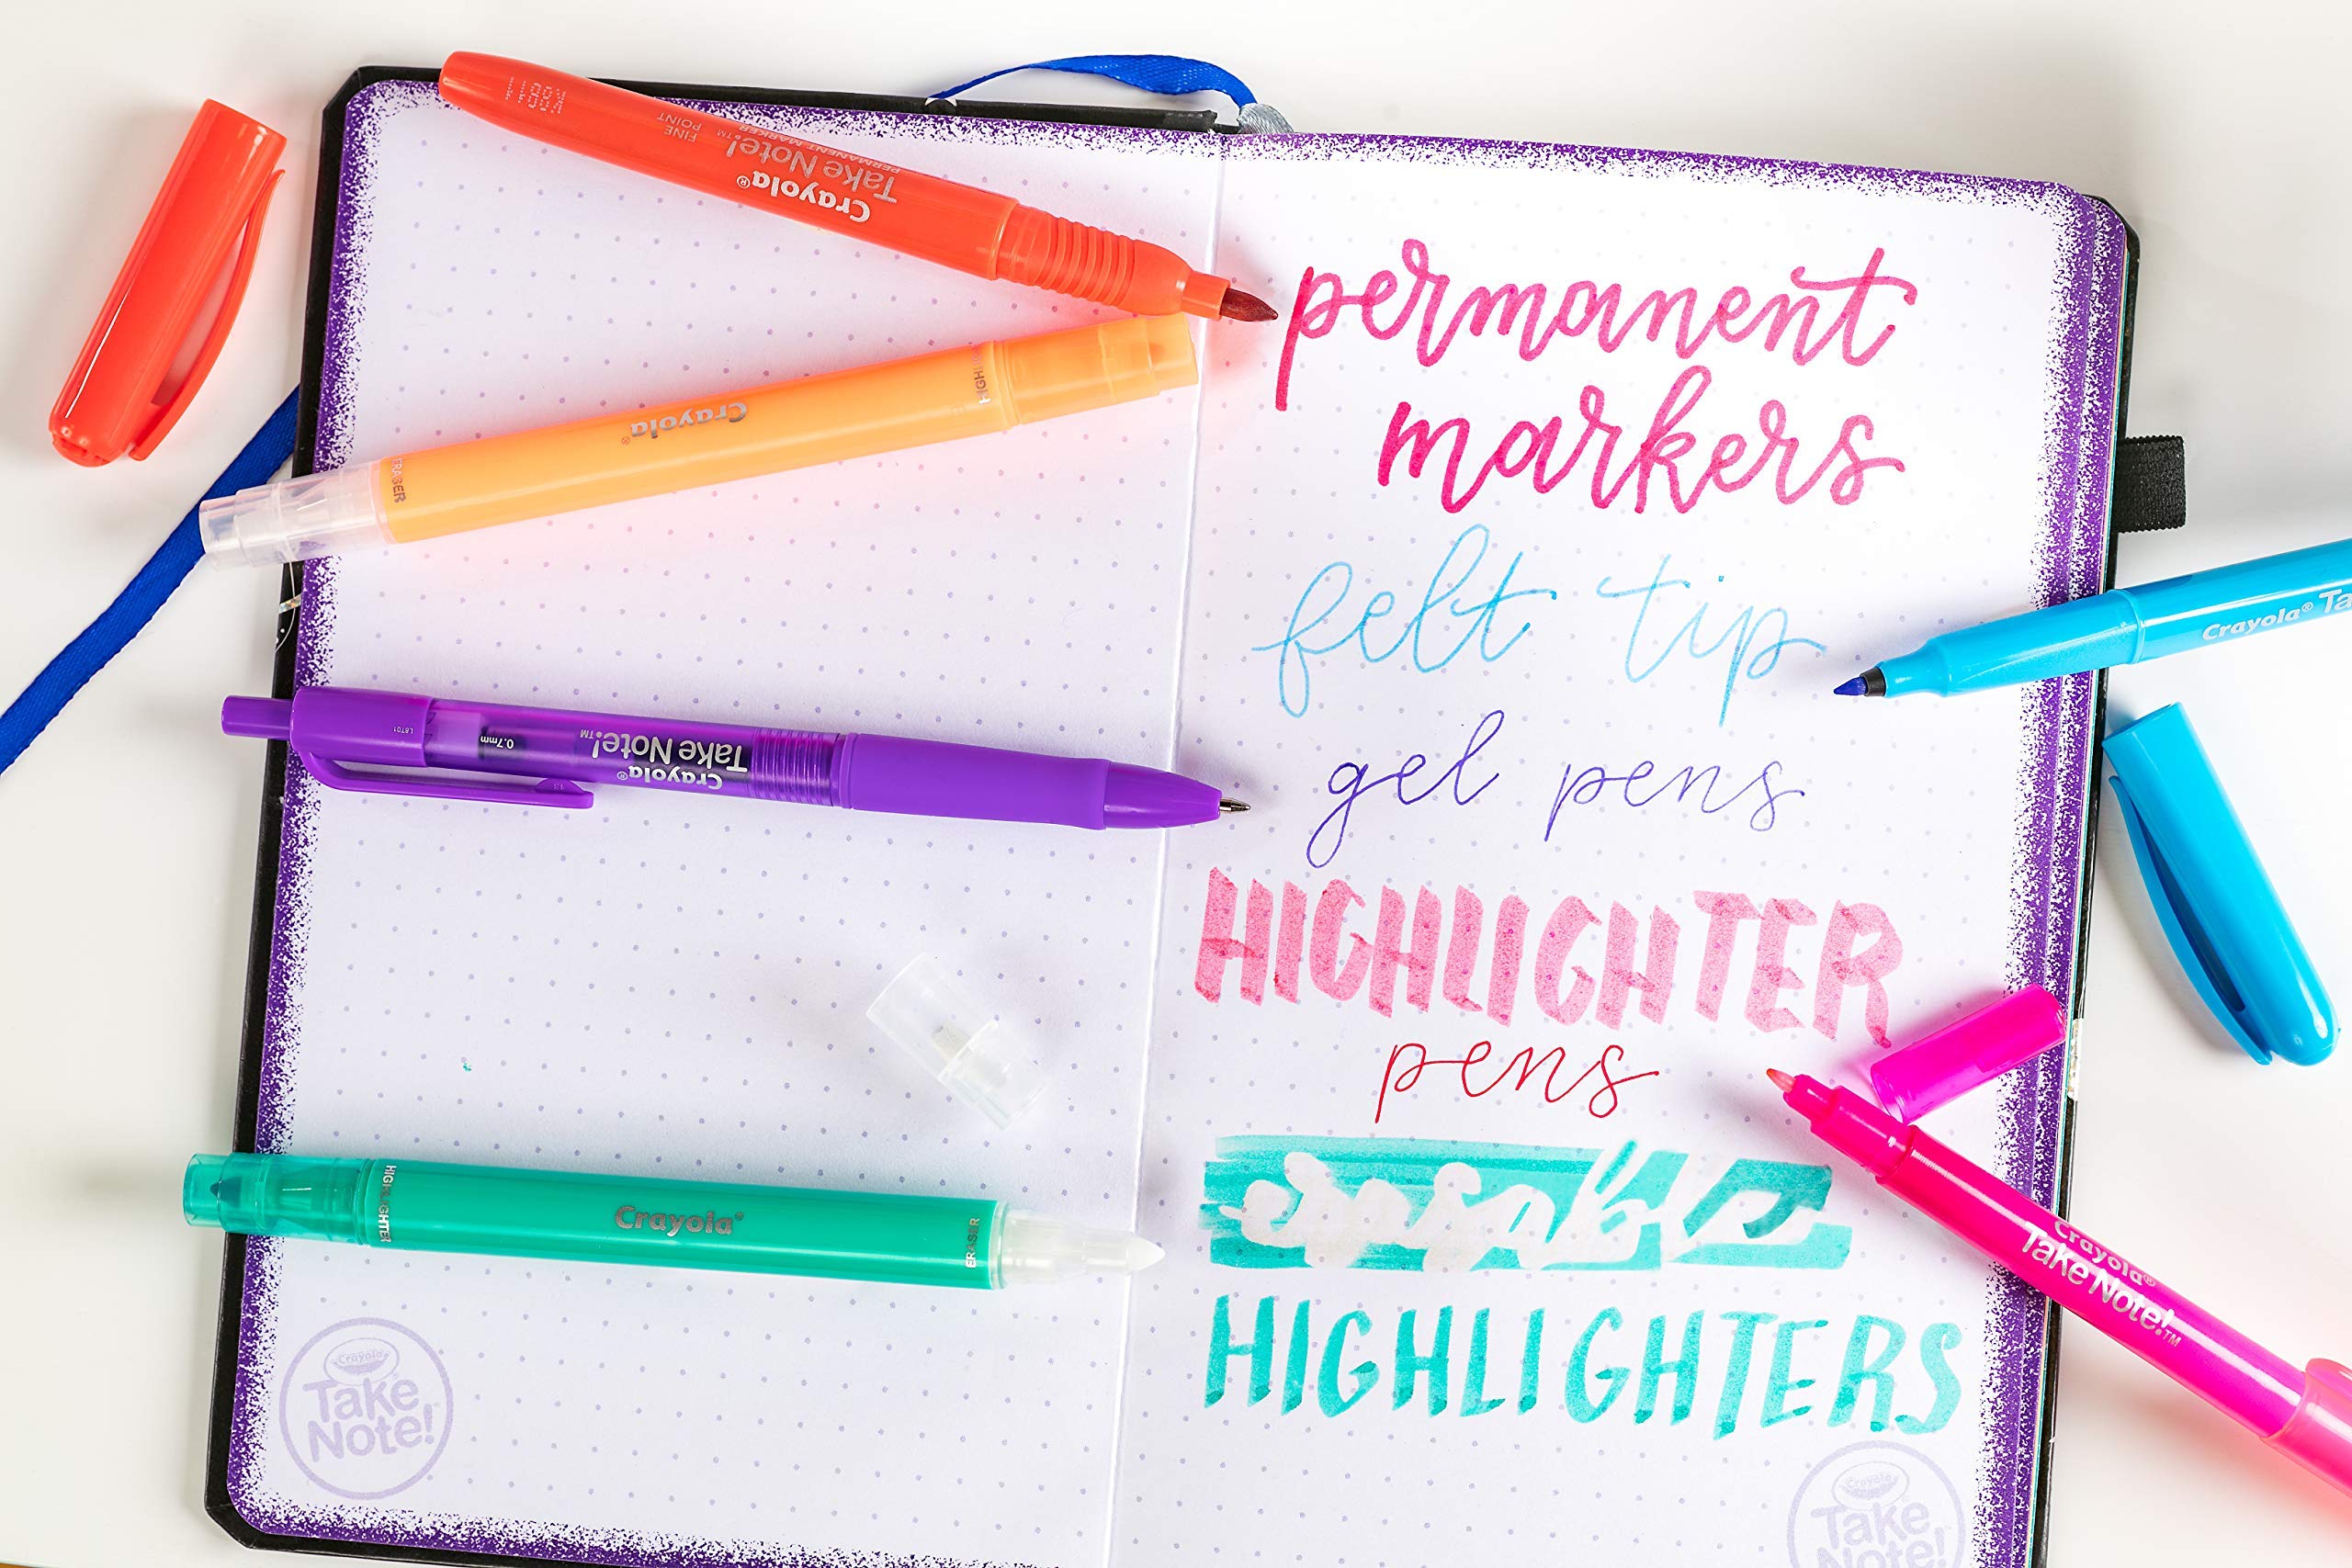 K8811
FINE
POINT
Crayola®
Take Note!™
PERMANENT MARKER
Crayola®
ERASER
L8T01
0.7mm
Crayola®
Take Note!™
HIGHLIGHTER
Crayola®
ERASER
Crayola
Take
Note!
permanent
markers
felt tip
gel pens
HIGHLIGHTER
pens
erasable
HIGHLIGHTERS
Crayola® Ta
Crayola®
Take Note!™
Crayola
Take
Note!